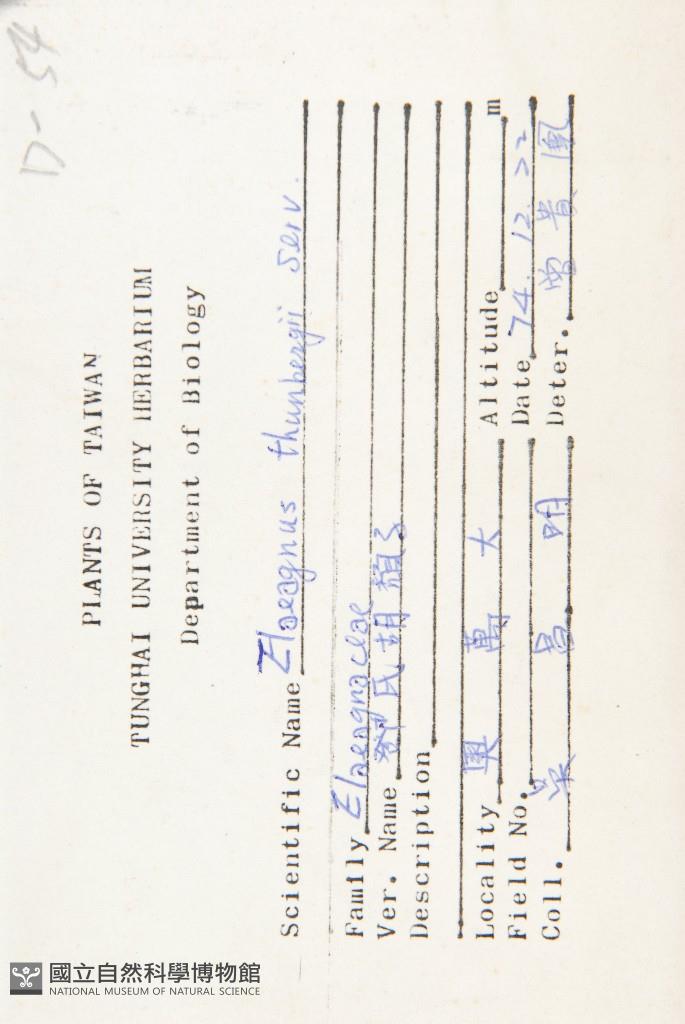 D-54
PLANTS OF TAIWAN
TUNGHAI UNIVERSITY HERBARIUM
Department of Biology
Scientific Name Elaeagnus thunbergii Serv.
Family Elaeagnaceae
Ver. Name 鄧氏胡頹子
Description
Locality 奧萬大 Altitude m
Field No. Date 74.12.22
Coll. 吳昌明 Deter. 曾貴鳳
國立自然科學博物館
NATIONAL MUSEUM OF NATURAL SCIENCE